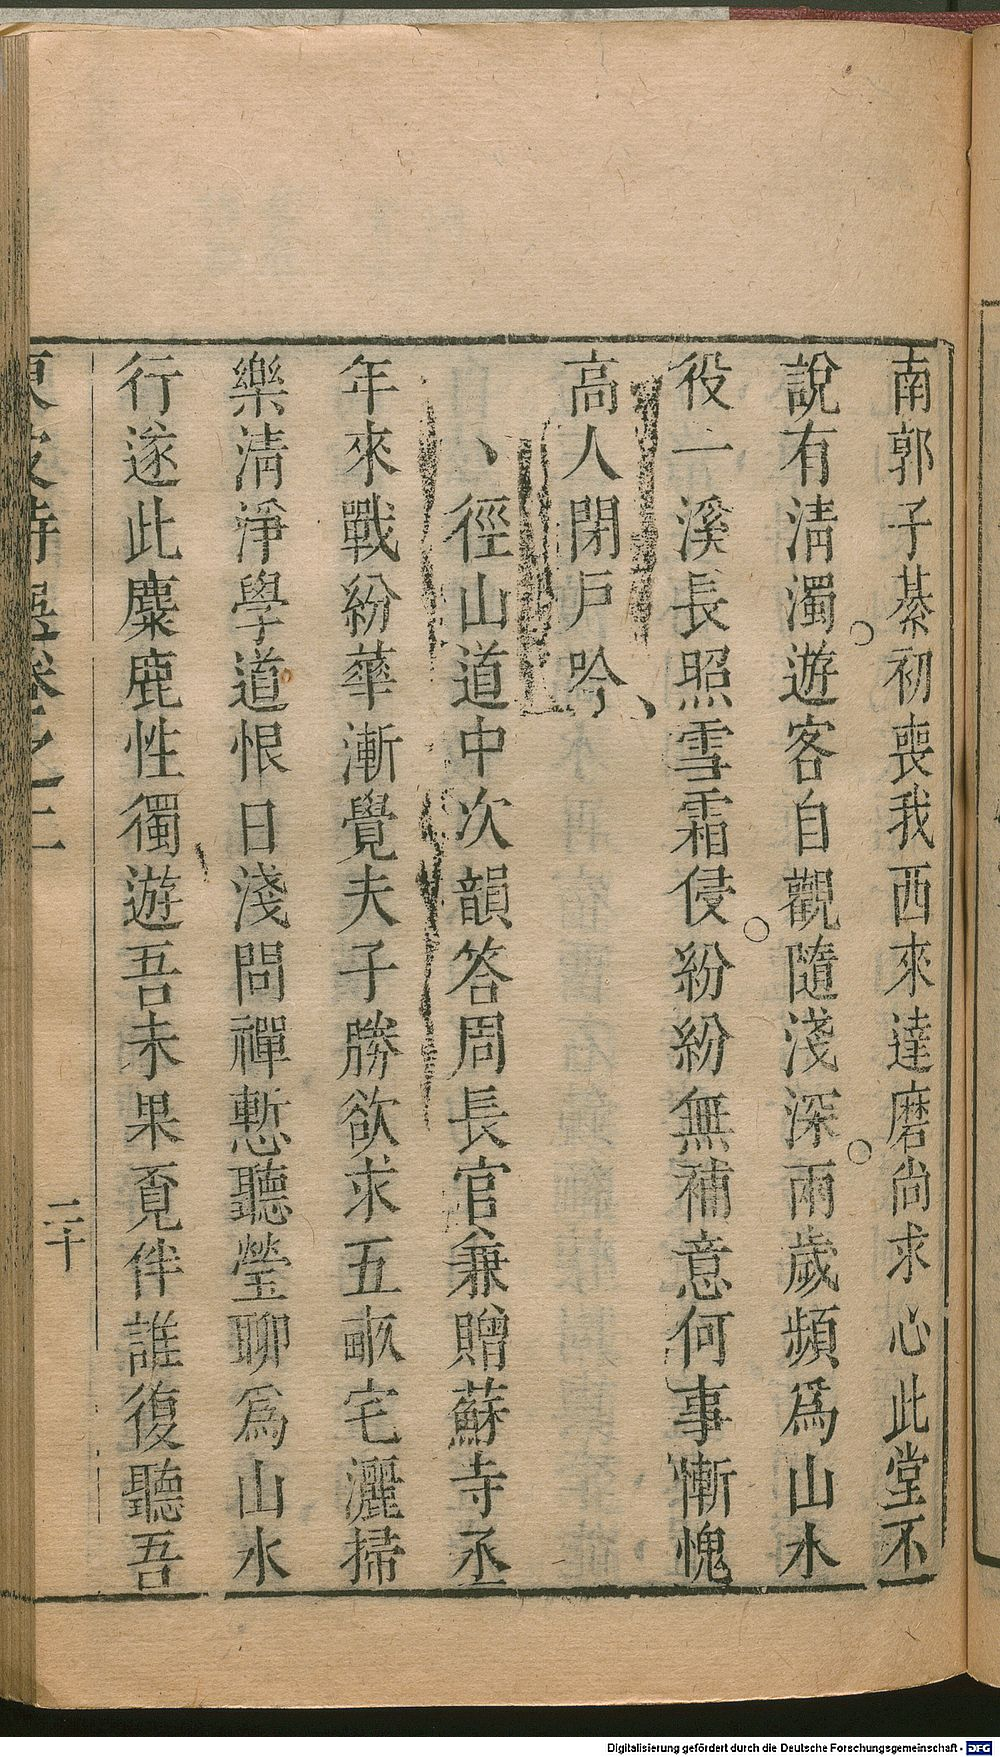 南郭子綦初喪我西來達磨尚求心此堂不
說有清濁遊客自觀隨淺深兩歲頻爲山水
役一溪長照雪霜侵紛紛無補竟何事慚愧
高人閉戶吟
徑山道中次韻答周長官兼贈蘇寺丞
年來戰紛華漸覺夫子勝欲求五畝宅灑掃
樂清淨學道恨日淺問禪慙聽瑩聊爲山水
行遂此麋鹿性獨遊吾未果覓伴誰復聽吾
東坡詩選卷之二
二十
Digitalisierung gefördert durch die Deutsche Forschungsgemeinschaft - DFG